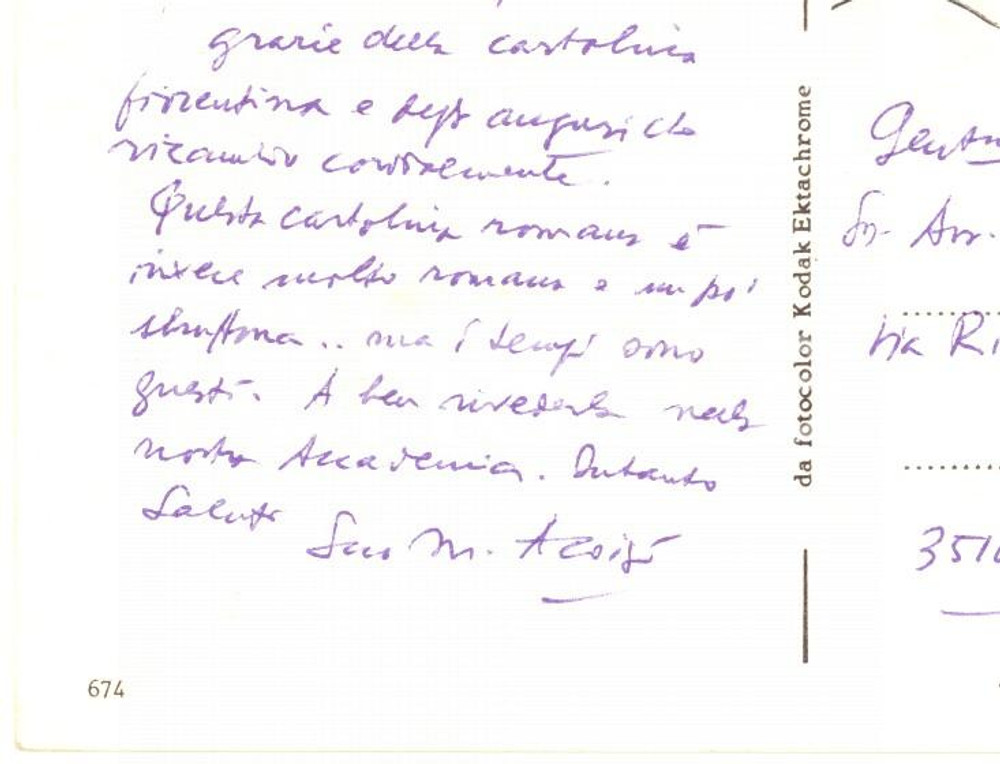 grazie della cartolina
fiorentina e degli auguri che
ricambio cordialmente.
Questa cartolina romana è
invece molto romana e un po'
sbruffona.. ma i tempi sono
questi. A ben rivederla nella
nostra Accademia. Intanto
Saluti Suo M.
Sr. Avv.
Via Ri
351
da fotocolor Kodak Ektachrome
674